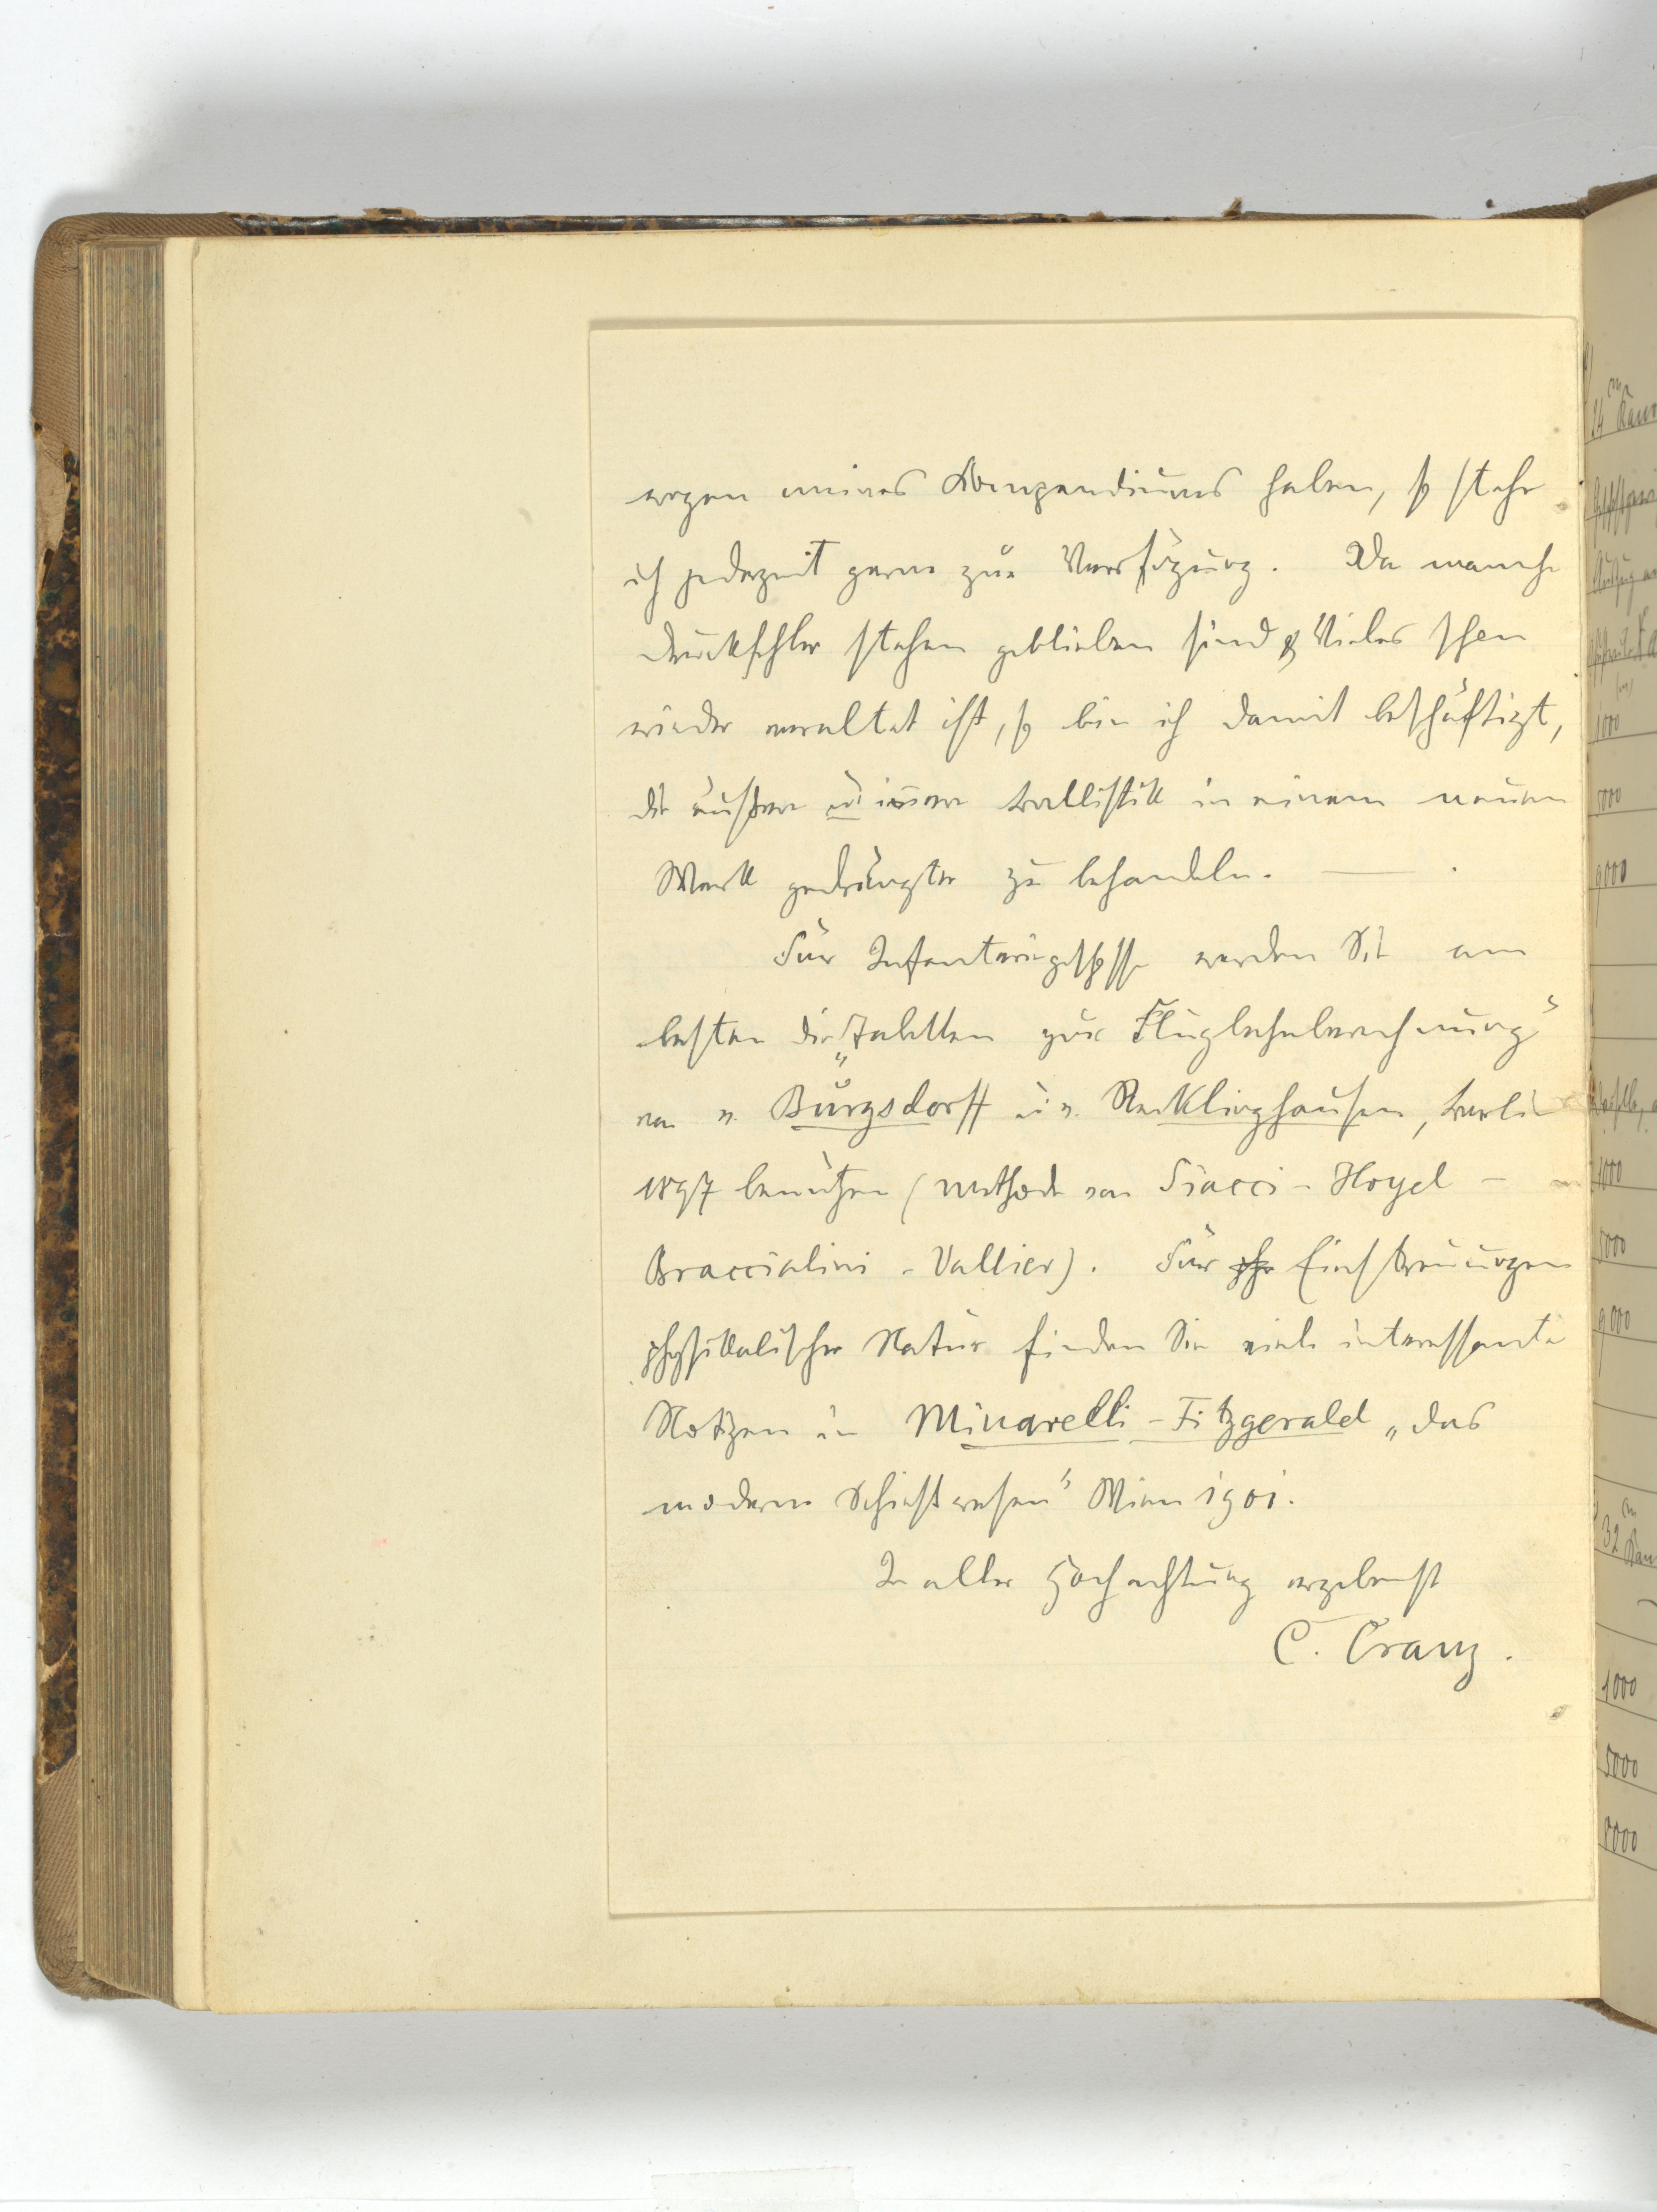 wegen meines Kompendiums haben, so stehe
ich jederzeit gerne zur Verfügung. Da manche
Druckfehler stehen geblieben sind & Vieles schon
wieder veraltet ist, so bin ich damit beschäftigt,
die äußere u. innere Ballistik in einem neuen
Werk gedrängter zu behandeln. — .
Für Infanteriegeschosse werden Sie am
besten die „Tabellen zur Flugbahnberechnung"
von v. Burgsdorff u. v. Recklinghausen, Berlin
1897 benützen (Methode von Siacci - Hoyel -
Braccialini - Vallier). Für Einstreuungen
physikalischer Natur finden Sie viele interessante
Notizen in Minarelli - Fitzgerald „das
moderne Schießwesen" Wien 1901.
In aller Hochachtung ergebenst
C. Cranz.
1000
5000
9000
1000
5000
9000
1000
5000